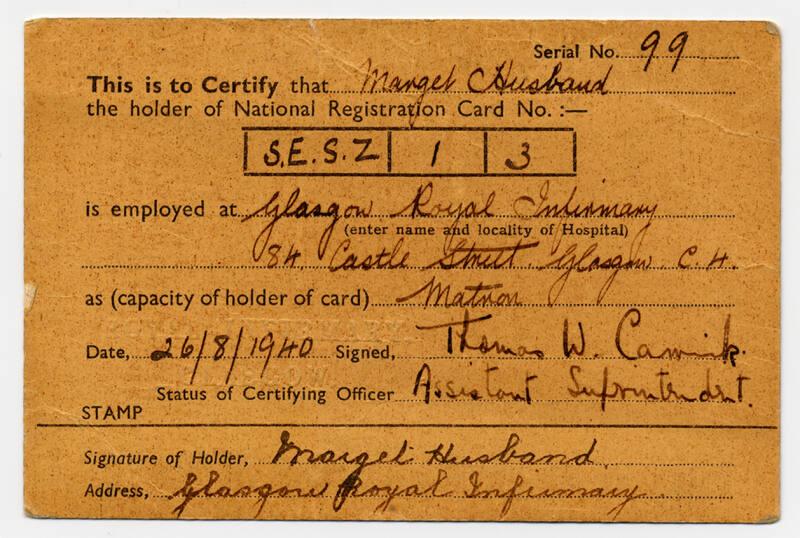 Serial No. 99
This is to Certify that Marget Husband
the holder of National Registration Card No. :—
S.E.S.Z 1 3
is employed at Glasgow Royal Infirmary
(enter name and locality of Hospital)
84, Castle Street. Glasgow C.4.
as (capacity of holder of card) Matron
Date, 26/8/1940 Signed, Thomas W.
Status of Certifying Officer Assistant Suprintendent.
STAMP
Signature of Holder, Marget Husband.
Address, Glasgow Royal Infirmary.